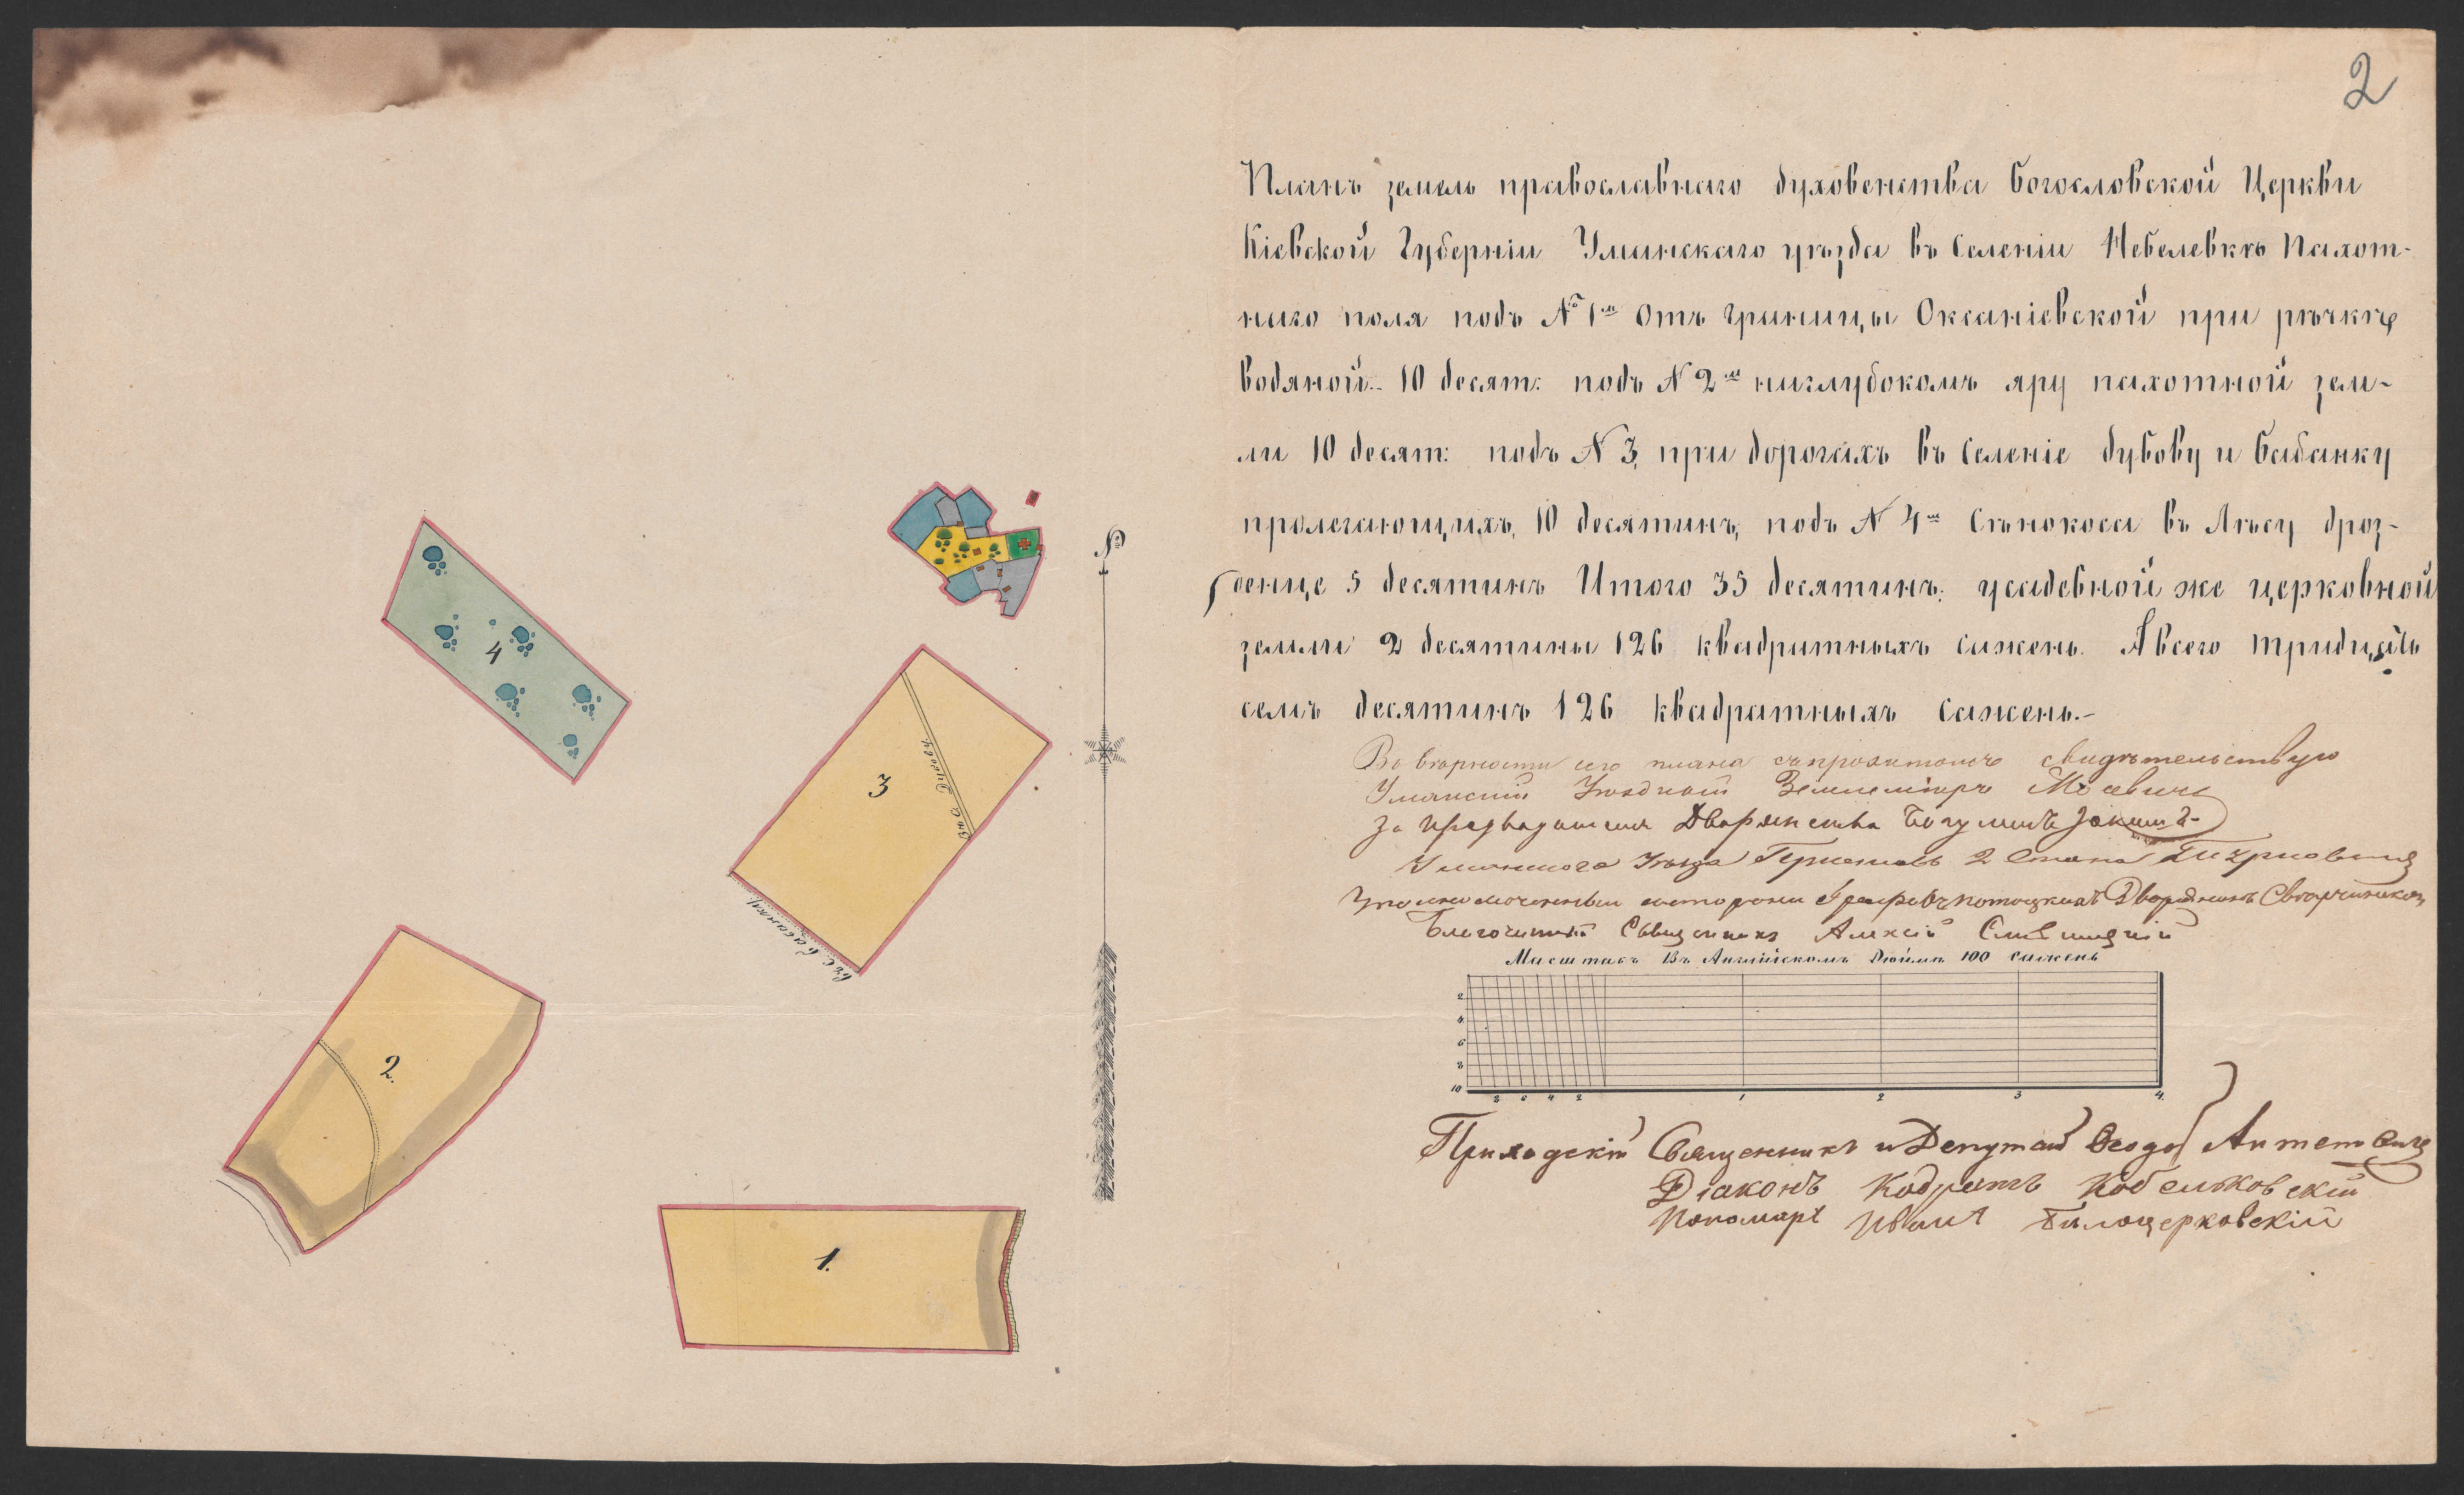 2
Планъ земель православнаго духовенства Богословской Церкви
Кіевской Губерніи Уманскаго уѣзда въ Селеніи Небелевкѣ Пахот-
наго поля подъ № 1м Отъ границы Оксаніевской при рѣчкѣ
Водяной.- 10 десят: подъ N 2м наглубокомъ яру пахотной зем-
ли 10 десят: подъ N 3, при дорогахъ въ Селеніе Дубову и Бабанку
пролегающихъ, 10 десятинъ, подъ N 4м Сѣнокоса въ Лѣсу дроз-
денце 5 десятинъ Итого 35 десятинъ: усадебной же церковной
земли 2 десятины 126 квадратныхъ сажень. А всего тридцать
семъ десятинъ 126 квадратныхъ Сажень.-
Въ верности сего плана свидѣтельствую
Уманскій Уѣздный Землемѣръ
За Дворянства
Уѣзда 2 Стана
Дворянинъ
Благочинный Священникъ Алексій
Масштабъ Въ Англійскомъ Дюймѣ 100 сажень
2
4
6
8
10
8 6 4 2 1 2 3 4.
Приходскій Священникъ и Депутат Ѳеодор
Діаконъ Кодратъ Кобельковскій
Пономарь Иванъ Билоцерковскій
N
4
3
Въ С. Дубову
Въ С. Бабанку
2.
1.